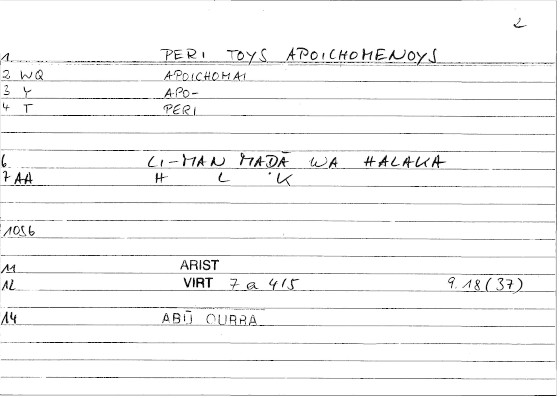 2
1. PERI TOYS APOICHOMENOYS
2 WQ APOICHOMAI
3 Y APO-
4 T PERI
6 LI-MAN MADĀ WA HALAKA
7 AA H L K
1056
11 ARIST
12 VIRT 7 a 4/5 9.18(37)
14 ABŪ QURRA